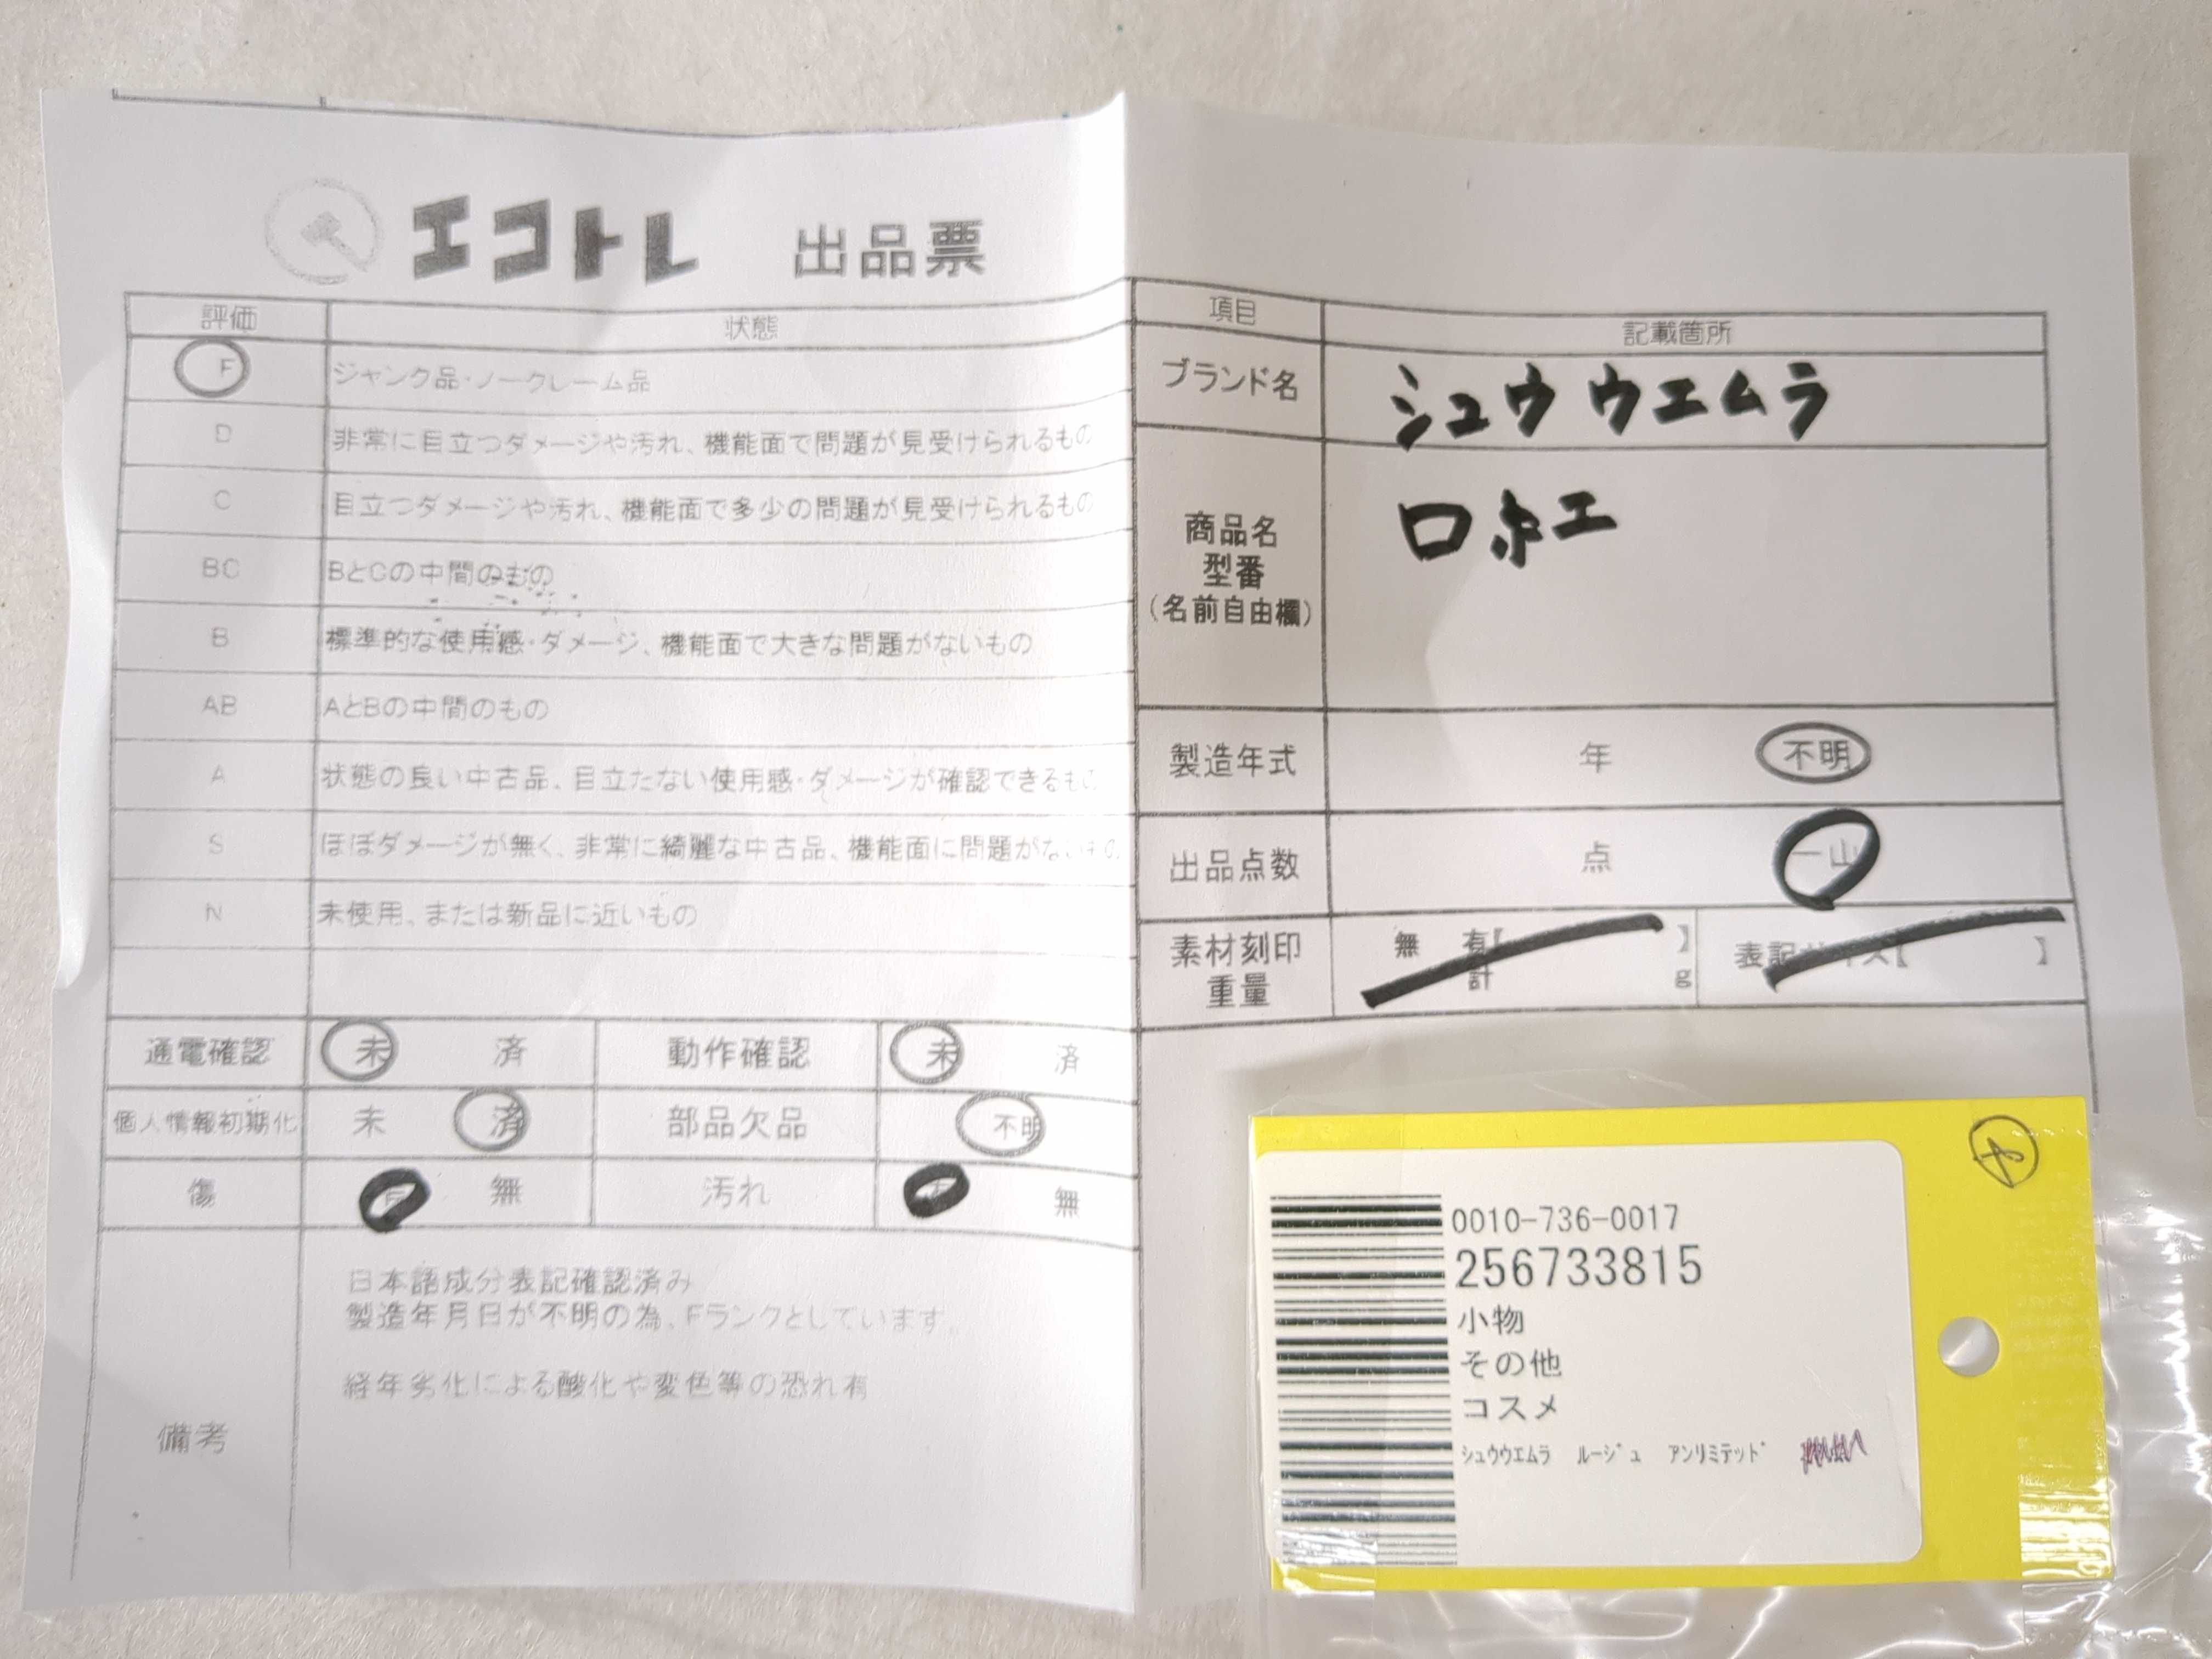 エコトレ 出品票
評価 状態
F ジャンク品・ノークレーム品
D 非常に目立つダメージや汚れ、機能面で問題が見受けられるもの
C 目立つダメージや汚れ、機能面で多少の問題が見受けられるもの
BC BとCの中間のもの
B 標準的な使用感・ダメージ、機能面で大きな問題がないもの
AB AとBの中間のもの
A 状態の良い中古品、目立たない使用感・ダメージが確認できるもの
S ほぼダメージが無く、非常に綺麗な中古品、機能面に問題がないもの
N 未使用、または新品に近いもの
通電確認 未 済 動作確認 未 済
個人情報初期化 未 済 部品欠品 不明
傷 無 汚れ 無
備考
日本語成分表記確認済み
製造年月日が不明の為、Fランクとしています。
経年劣化による酸化や変色等の恐れ有
項目 記載箇所
ブランド名 シュウ ウエムラ
商品名
型番
(名前自由欄)
口ホエ
製造年式 年 不明
出品点数 点 一山
素材刻印
重量
無 有【 】
計 g
表記サイズ【 】
0010-736-0017
256733815
小物
その他
コスメ
シュウウエムラ ルージュ アンリミテッド